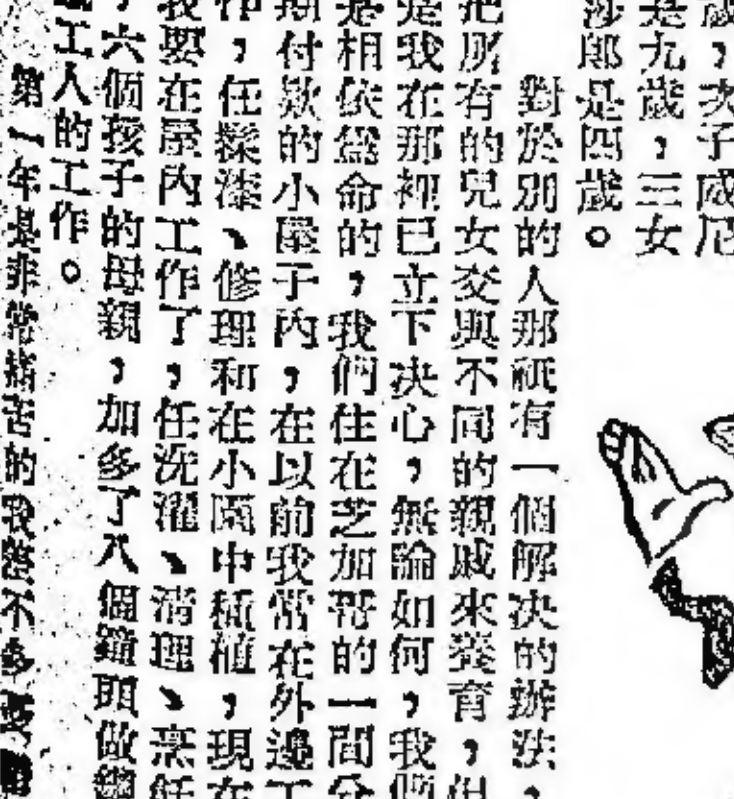 歲，次子威尼
是九歲，三女
涉郎是四歲。
對於別的人那祇有一個解决的辦法，
把所有的兒女交與不同的親戚來養育，但
是我在那裡已立下决心，無論如何，我們
是相依爲命的，我們住在芝加哥的一間分
期付欵的小屋子內，在以前我常在外邊工
作，任髹漆、修理和在小園中種植，現在
我要在屋內工作了，任洗濯、清理、烹飪
六個孩子的母親，加多了八個鐘頭做
工人的工作。
第一年是非常痛苦的我差不多要